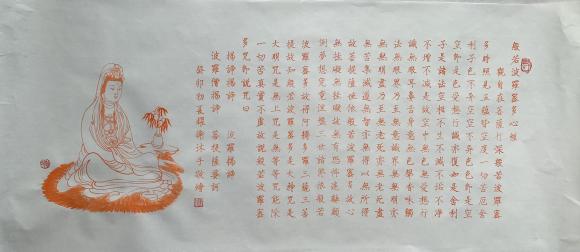 般若波羅蜜多心經
觀自在菩薩行深般若波羅蜜
多時照見五蘊皆空度一切苦厄舍
利子色不異空空不異色色即是空
空即是色受想行識亦復如是舍利
子是諸法空相不生不滅不垢不淨
不增不減是故空中無色無受想行
識無眼耳鼻舌身意無色聲香味觸
法無眼界乃至無意識界無無明亦
無無明盡乃至無老死亦無老死盡
無苦集滅道無智亦無得以無所得
故菩提薩埵依般若波羅蜜多故心
無罣礙無罣礙故無有恐怖遠離顛
倒夢想究竟涅槃三世諸佛依般若
波羅蜜多故得阿耨多羅三藐三菩
提故知般若波羅蜜多是大神咒是
大明咒是無上咒是無等等咒能除
一切苦真實不虛故說般若波羅蜜
多咒即說咒曰
揭諦揭諦 波羅揭諦
波羅僧揭諦 菩提薩婆訶
癸卯初夏沐手敬繪